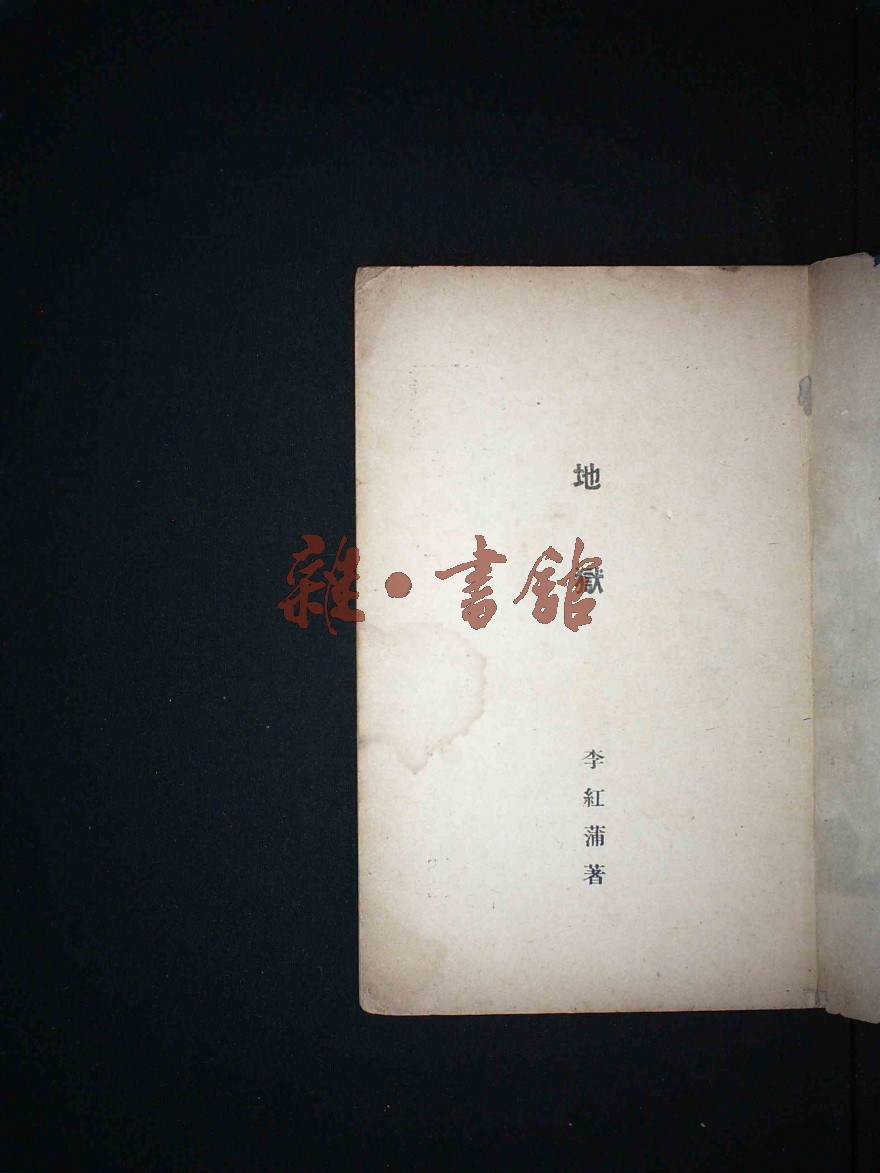 地獄
李紅蒲著
雜·書館